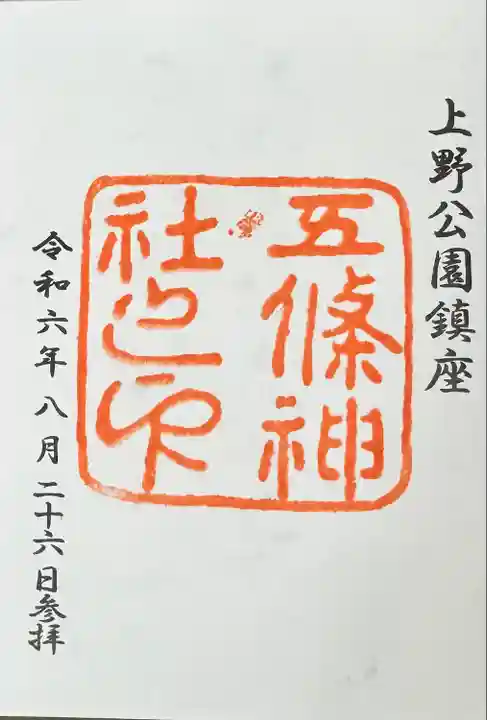 上野公園鎮座
五條神
社之印
令和六年八月二十六日参拝